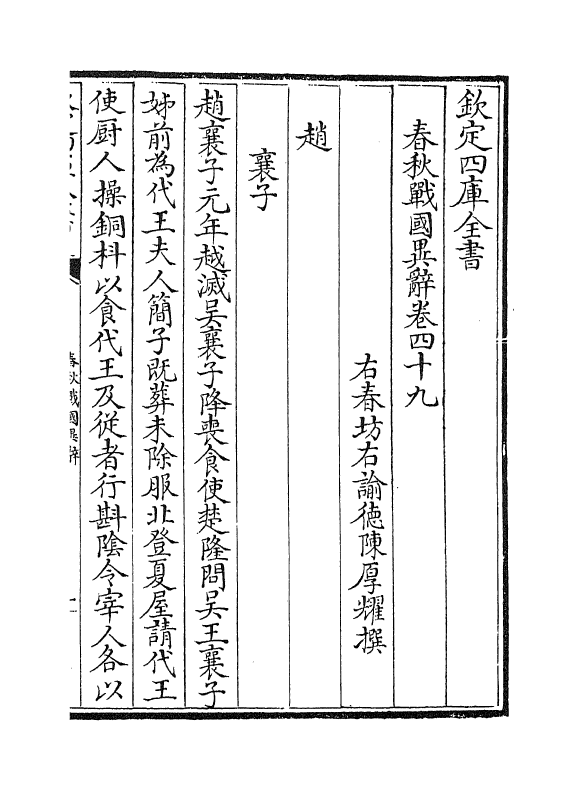 欽定四庫全書
春秋戰國異辭卷四十九
右春坊右諭德陳厚耀撰
趙
襄子
趙襄子元年越滅吳襄子降喪食使楚隆問吳王襄子
姊前為代王夫人簡子既葬未除服北登夏屋請代王
使厨人操銅枓以食代王及從者行斟陰令宰人各以
春秋戰國異辭